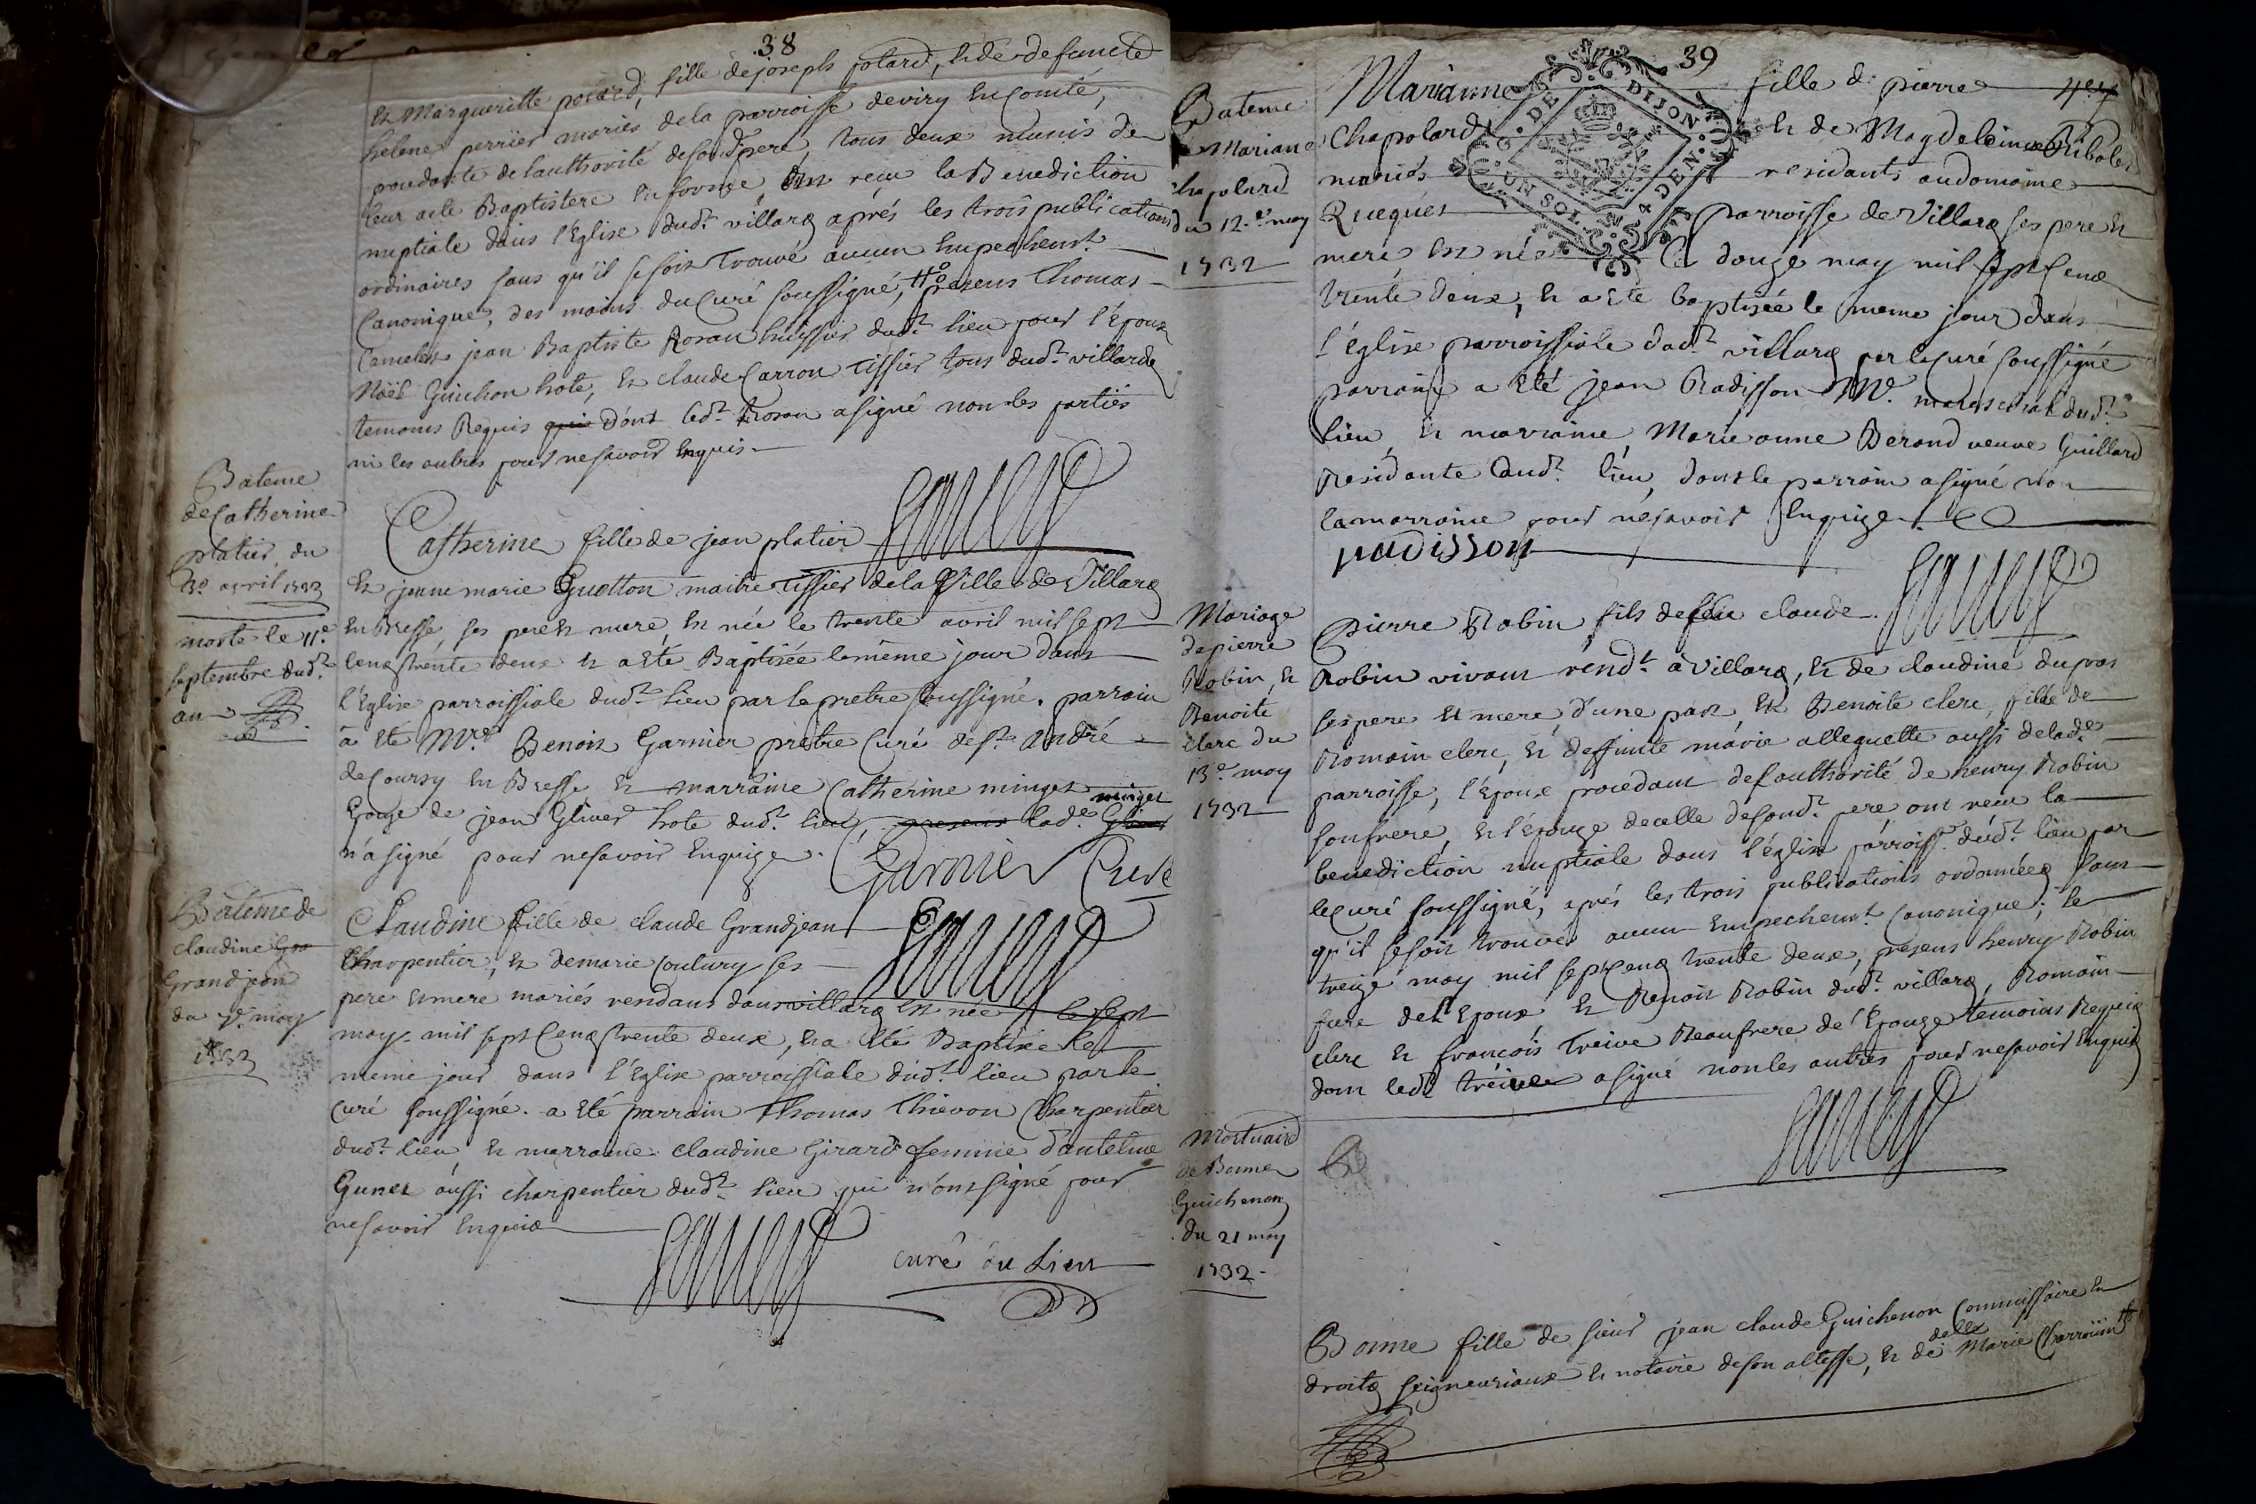 38
et Margueritte potard, fille de joseph potard, et de deffuncte
helene perrier mariés de la parroisse de viry en Comté,
procedante de l'authorité de sond. pere, tous deux munis de
leur acte Baptistere en forme, ont receu la Benediction
nuptiale dans l'Eglise dud.t villars aprés les trois publications
ordinaires sans qu'il se soit Trouvé aucun Empechemt.
Canonique, des mains du Curé soussigné, presens Thomas
jean Baptiste Rosan huissier dud.t lieu pour l'Epoux
Noël Guichon hote, et claude Carron tissier tous dud.t villards
temoins Requis qui dont led.t Rosan a signé non les parties
ni les autres pour ne savoir Enquis.
Bateme
de Catherine
platier du
30 avril 1732
morte le 11e
septembre dud.t
an
Catherine fille de jean platier
et jeanne marie Guotton maitre tissier de la Ville de Villars
en Bresse ses pere et mere, est née le trente avril mil sept
cens trente deux et a eté Baptisée le méme jour dans
l'Eglise parroissiale dud.t lieu par le pretre soussigné. parrain
à eté Mre. Benoit Garnier prêtre Curé de st. andré
de Coursy en Bresse et marraine Catherine minget
Epouze de jean Gliner hote dud.t lieu, presens lad.e minget
n'a signé pour ne savoir Enquize.
Garnier Curé
Batême de
claudine Gra
Grand jean
du 7e may
1732
Claudine fille de claude Grandjean
Charpentier, et de marie Coutury ses
pere et mere mariés rendans dans villars est née le sept
may mil sept Cens trente deux, et a eté Baptisée le
meme jour dans l'Eglise parroissiale dud.t lieu par le
Curé soussigné. a eté parrain Thomas Thievon Charpentier
dud.t lieu et marraine claudine Girard femme d'antelme
Gunet aussi charpentier dud.t lieu qui n'ont signé pour
ne savoir Enquis
curé du Lieu
39
G. DE DIJON
UN SOL 4 DEN.
Bateme
de Mariane
chapolard
du 12e may
1732
Marianne fille de pierre
Chapolard et de Magdeleine Ribolet
mariés residants au domaine
Rucques parroisse de Villars ses pere et
mere est née Le douze may mil sept Cens
trente deux, et a eté baptisée le meme jour dans
l'église parroissiale dud.t villars par le Curé soussigné
parrain a eté jean Radisson Me. mareschal dud.t
lieu, et marraine Marie anne Berond veuve Guillard
residante aud.t lieu, dont le parrain a signé non
la marraine pour ne savoir Enquize.
radisson
Mariage
de pierre
Robin, et
Benoite
clerc du
13e may
1732
pierre Robin fils de feu claude
Robin vivant rend.t à Villars, et de claudine dupras
ses pere et mere d'une part, et Benoite clerc, fille de
Romain clerc, et deffunte marie alleguette aussi de lad.e
parroisse, l'époux procedant de l'authorité de henry Robin
son frere, et l'épouze de celle de sond.t pere, ont receu la
benediction nuptiale dans l'église parroiss. dud.t lieu par
le Curé soussigné, aprés les trois publications ordonnées sans
qu'il se soit trouvé aucun Empechemt. Canonique; le
treize may mil sept Cens trente deux, presens henry Robin
frere de l'Epoux et Benoit Robin dud.t villars, Romain
clerc et françois Treive Beaufrere de l'Epouze temoins Requis
dont led.t tréive a signé non les autres pour ne savoir Enquis
Mortuaire
de Bonne
Guichenon
du 21 may
1732
Bonne fille de sieur jean claude Guichenon Commissaire en
droits seigneuriaux et notaire de son altesse, et de delle Marie Charroüin